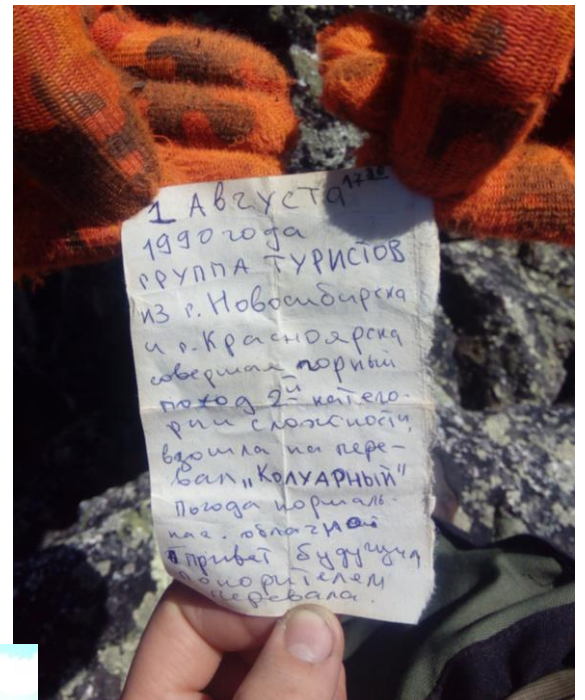 1 Августа 17³⁰
1990 года
ГРУППА ТУРИСТОВ
ИЗ г. Новосибирска
и г. Красноярска
совершая горный
поход 2й катего-
рии сложности,
взошла на пере-
вал „КОЛУАРНЫЙ"
погода нормаль-
ная. облачная
привет будущим
покорителем
перевала.